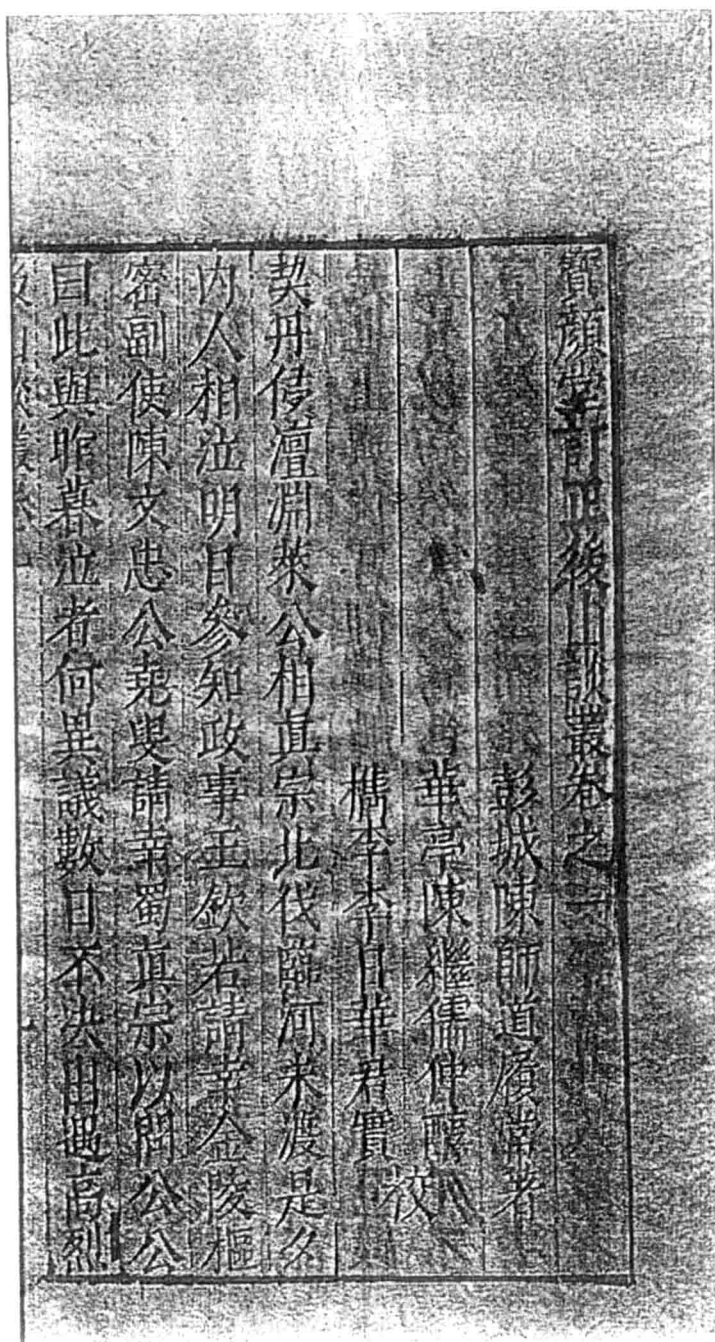 寳顔堂訂正後山談叢卷之一
彭城陳師道履常著
華亭陳繼儒仲醇
檇李李日華君實 校
契丹侵澶淵萊公相真宗北伐臨河未渡是夕
内人相泣明日參知政事王欽若請幸金陵樞
密副使陳文忠公堯叟請幸蜀真宗以問公公
曰此與昨暮泣者何異議數日不决出遇高烈